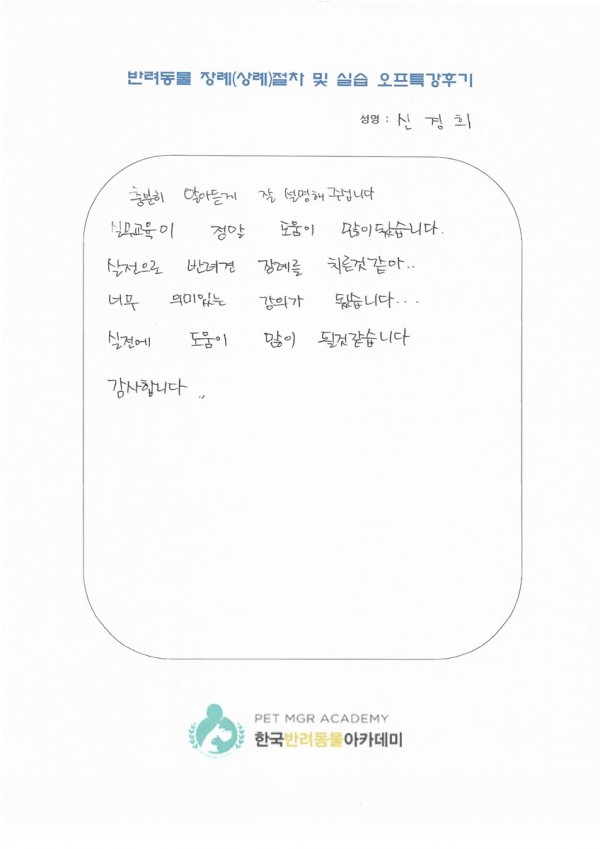 반려동물 장례(상례)절차 및 실습 오프특강후기
성명 : 신경희
충분히 알아듣게 잘 설명해 주십니다
실무교육이 정말 도움이 많이 됐습니다.
실전으로 반려견 장례를 치른것 같아..
너무 의미있는 강의가 됐습니다...
실전에 도움이 많이 될것 같습니다
감사합니다..
PET MGR ACADEMY
한국반려동물아카데미